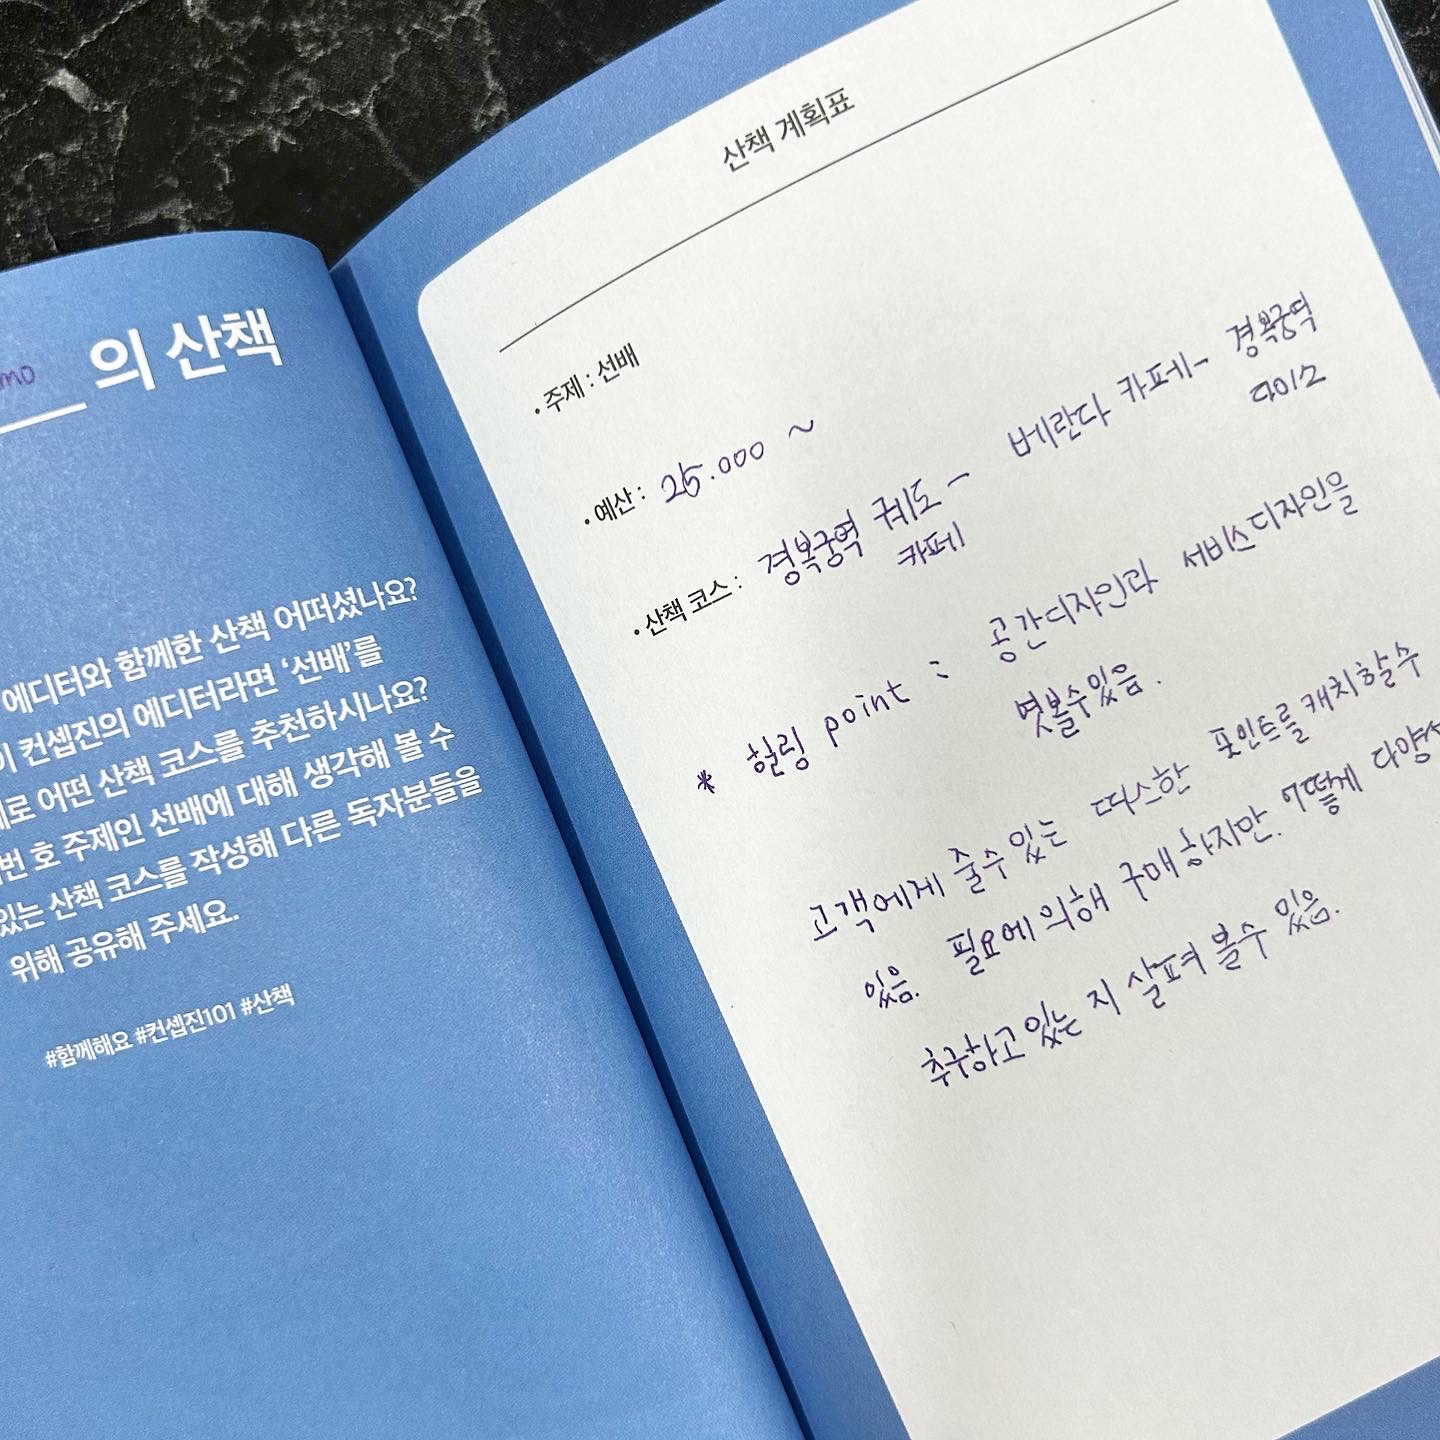 mo 의 산책
에디터와 함께한 산책 어떠셨나요?
컨셉진의 에디터라면 ‘선배’를
어떤 산책 코스를 추천하시나요?
번 호 주제인 선배에 대해 생각해 볼 수
있는 산책 코스를 작성해 다른 독자분들을
위해 공유해 주세요.
#함께해요 #컨셉진101 #산책
산책 계획표
• 주제 : 선배
• 예산 : 25.000 ~
• 산책 코스 : 경복궁역 궤도 - 베란다 카페 - 경복궁역
카페 다이소
* 힐링 point : 공간디자인과 서비스디자인을
엿볼수있음.
고객에게 줄수있는 따스한 포인트를 캐치할수
있음. 필요에 의해 구매하지만. 어떻게
추구하고 있는 지 살펴 볼수 있음.